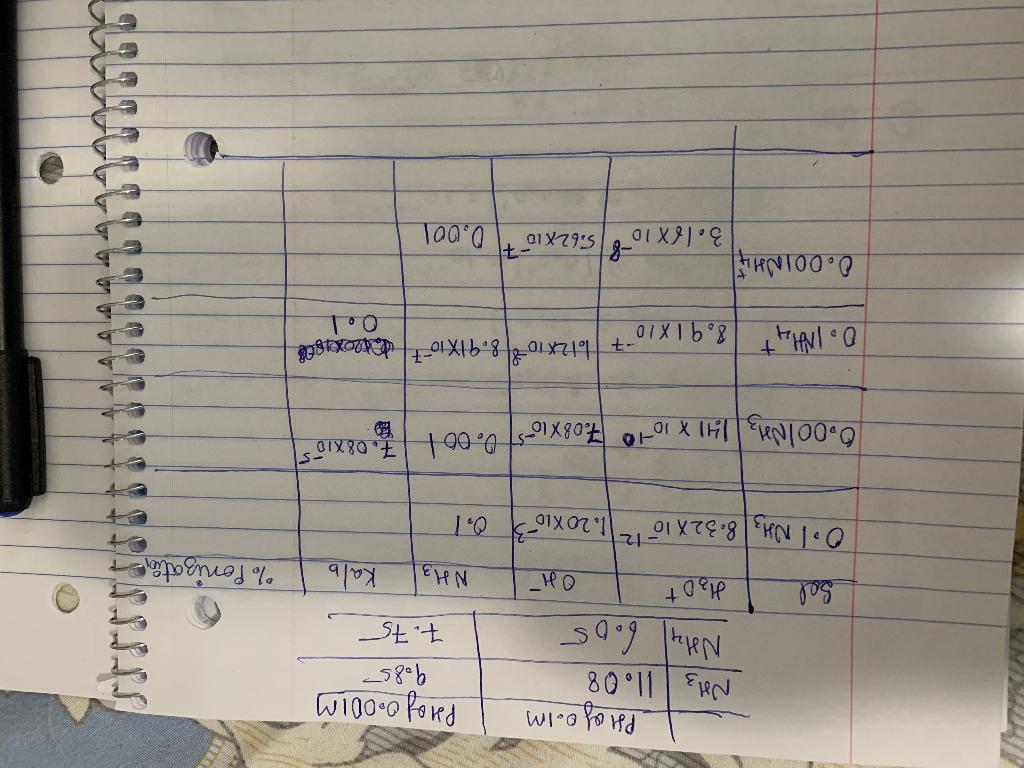 PH of 0.1M PH of 0.001M
NH₃ 11.08 9.85
NH₄ 6.05 7.75
Sol H₃O⁺ OH⁻ NH₃ Ka/b % Ionization
0.1 NH₃ 8.32 X 10⁻¹² 1.20 X 10⁻³ 0.1
0.001 NH₃ 1.41 X 10⁻¹⁰ 7.08 X 10⁻⁵ 0.001 7.08 X 10⁻⁵
0.1 NH₄⁺ 8.91 X 10⁻⁷ 1.12 X 10⁻⁸ 8.91 X 10⁻⁷ 0.1
0.001 NH₄⁺ X 10⁻⁸ 5.62 X 10⁻⁷ 0.001